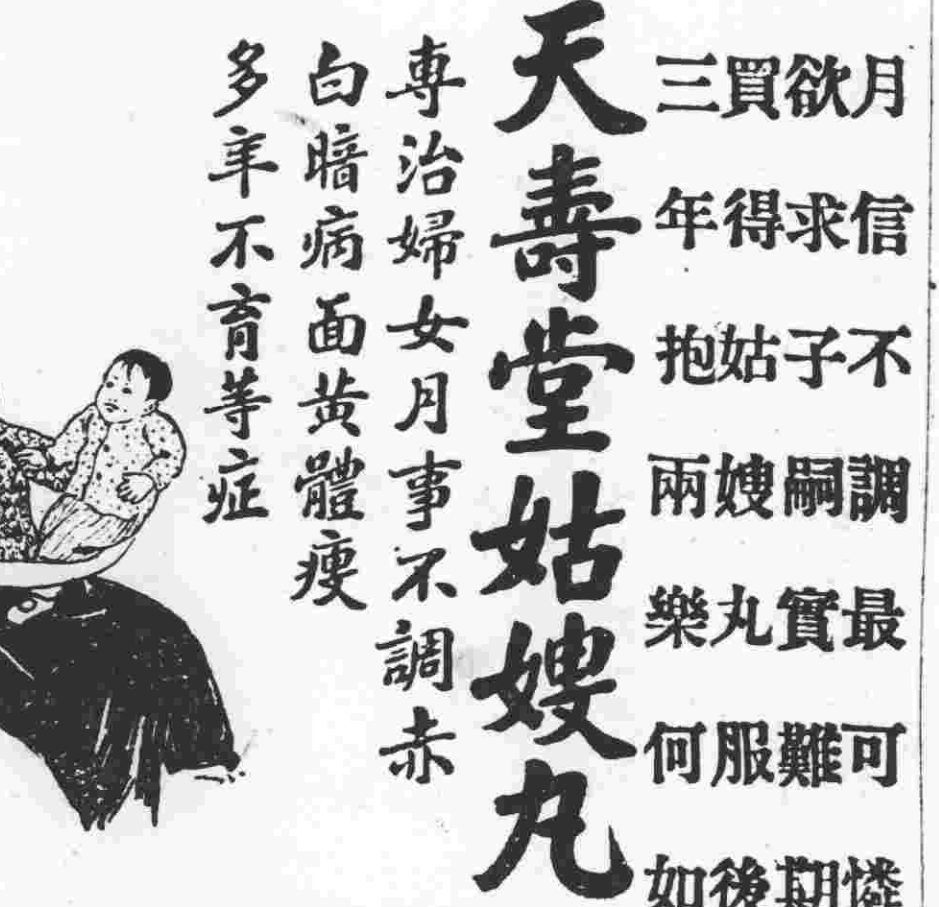 月信不調最可憐
欲求子嗣實難期
買得姑嫂丸服後
三年抱兩樂何如
天壽堂姑嫂丸
專治婦女月事不調赤
白暗病面黃體瘦
多年不育等症